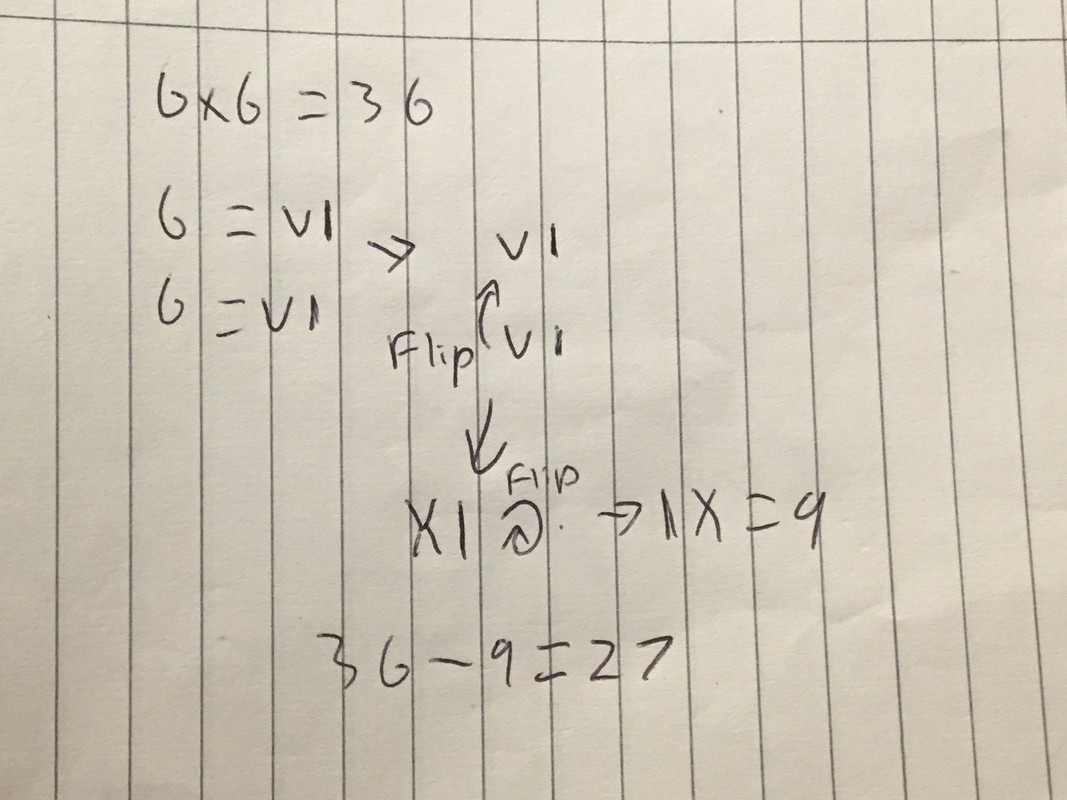 6x6 = 36
6 = VI → VI
6 = VI
Flip VI
Flip
XI → IX = 9
36 - 9 = 27